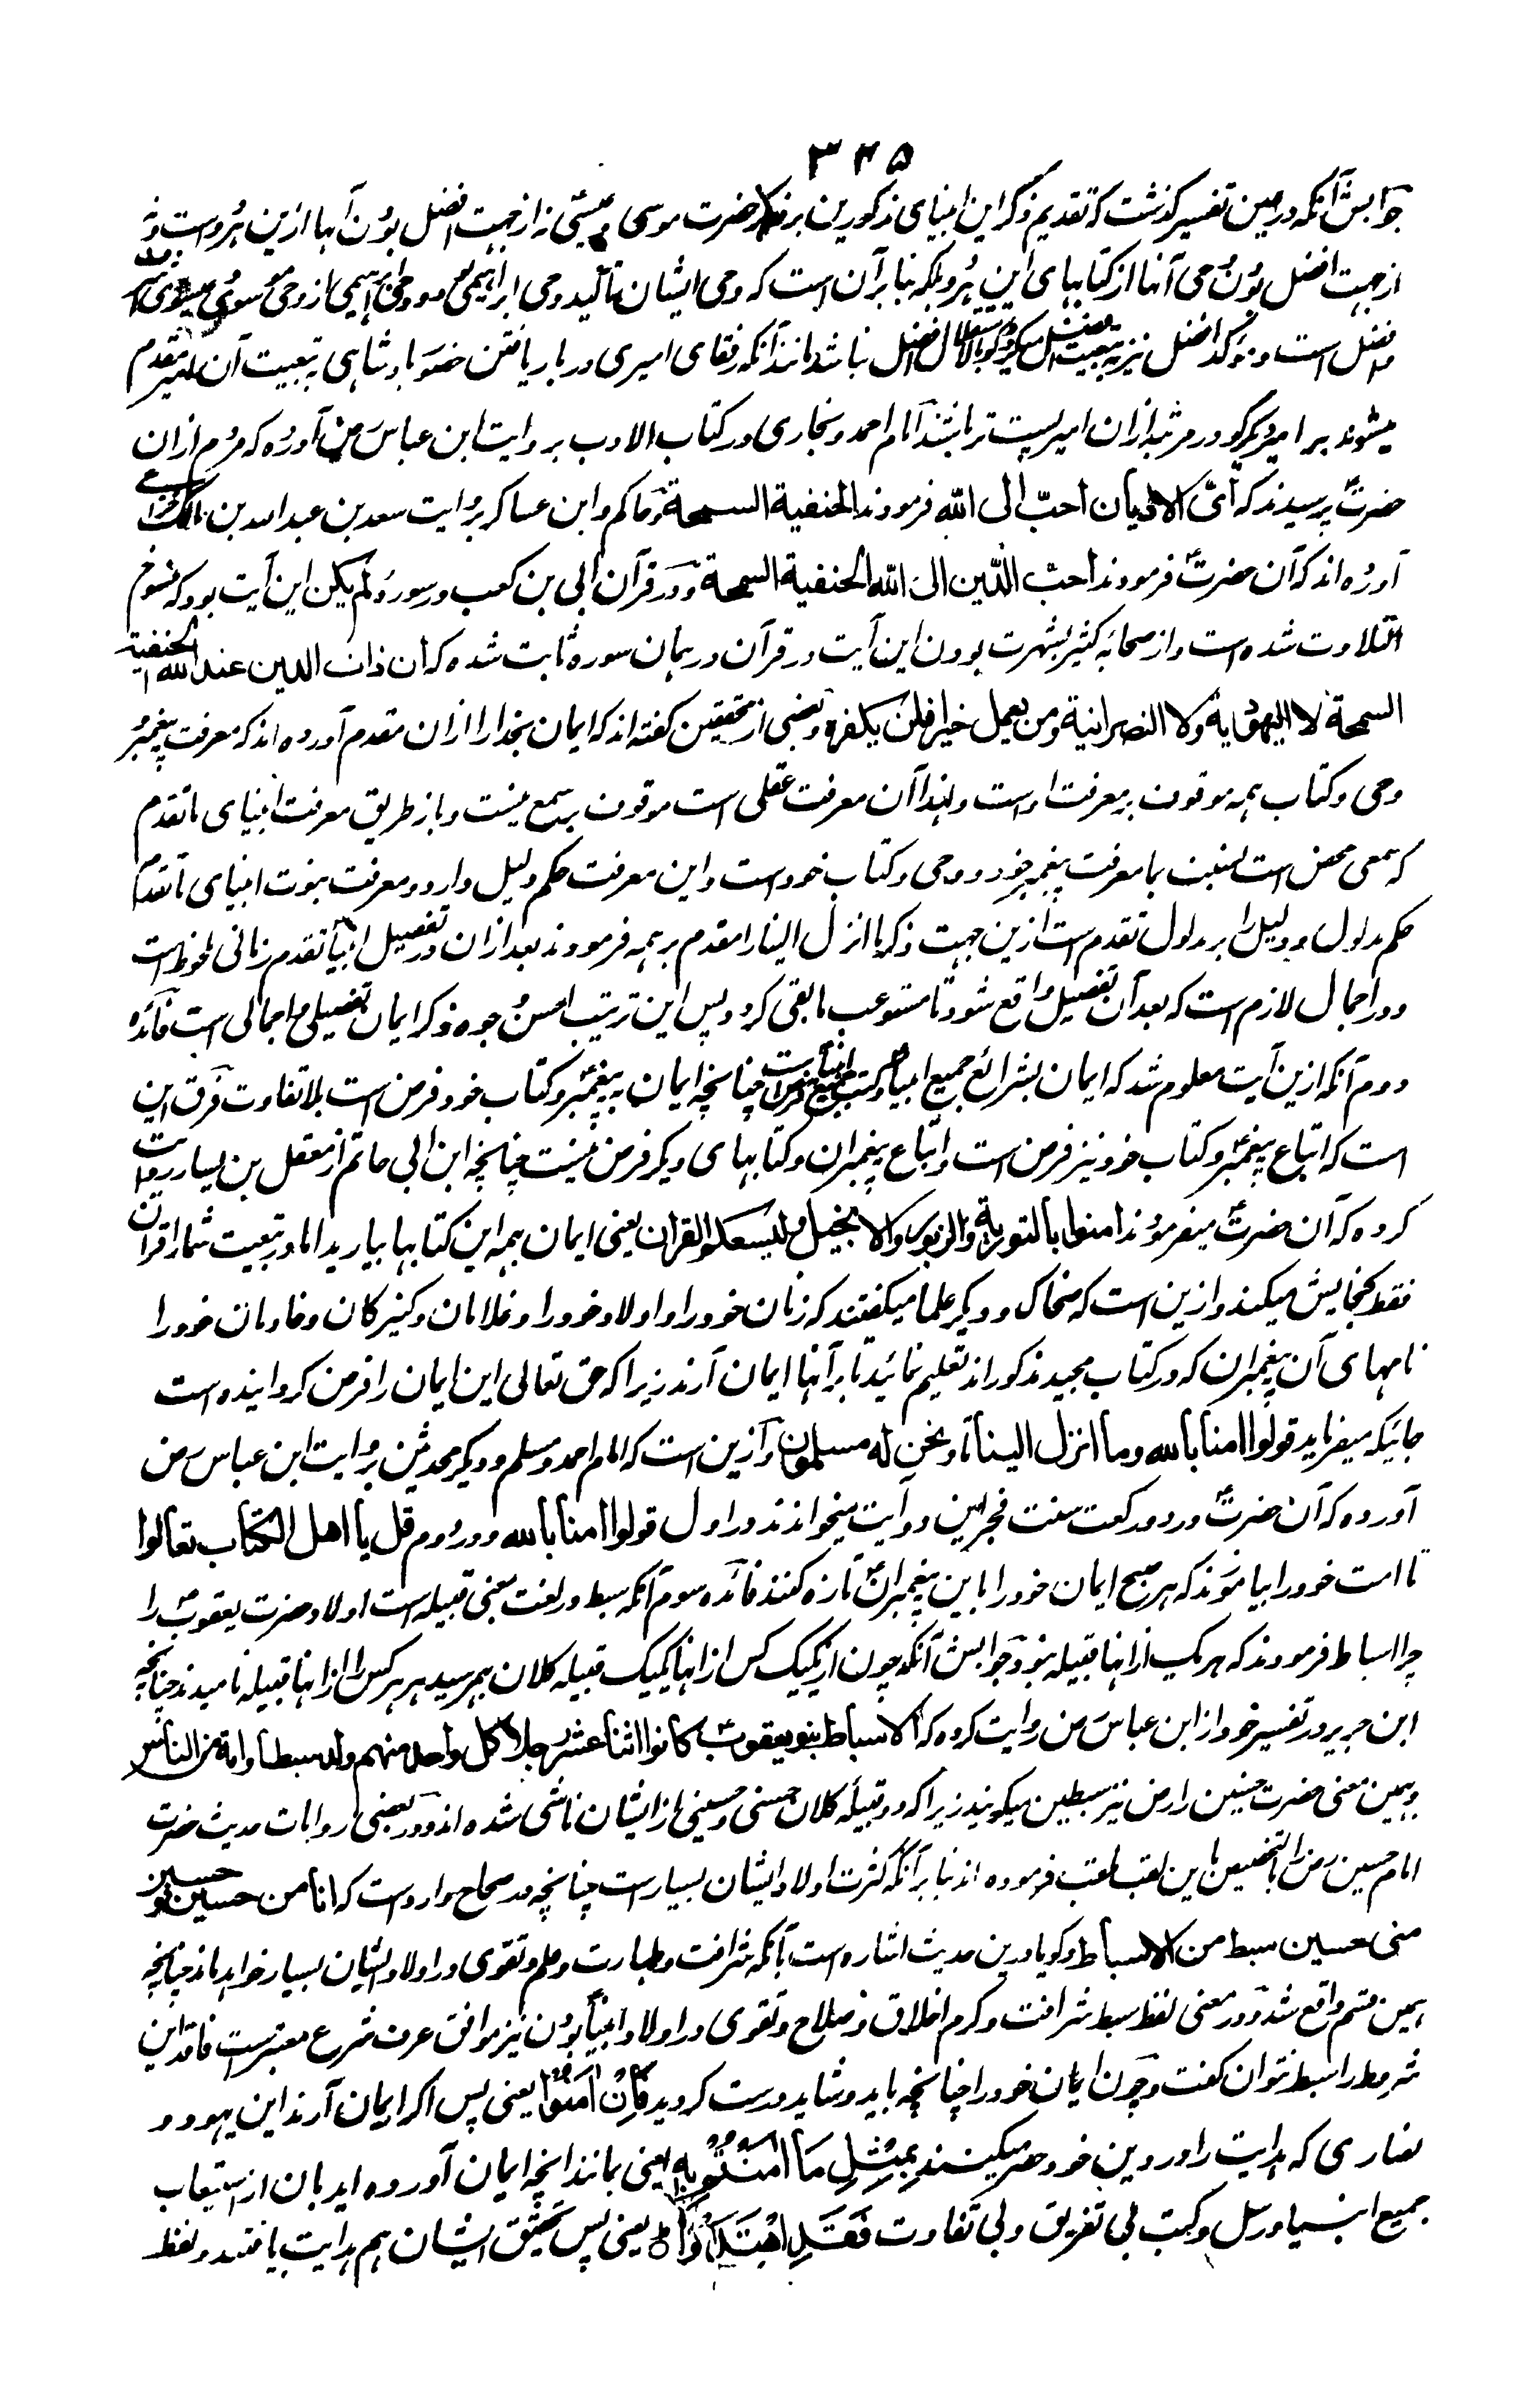 ۳۴۵
جوابش آنکه در عین تفسیر گذشت که تقدیم ذکر این انبیای مذکورین بر ذکر حضرت موسی و عیسی نه از جهت افضل بودن آنها ازین هر دو است و نه
از جهت افضل بودن وحی آنها از کتابهای این هر دو بلکه بنابر آن است که وحی ایشان تاکید وحی ابراهیمی بود و وحی ابراهیمی از وحی موسوی و عیسوی
افضل است و مؤکد افضل نیز به تبعیت افضل میگردد گو بالاستقلال افضل نباشد مانند آنکه رفقای امیری در بار یافتن حضور بادشاهی به تبعیت آن امیر مقدم
میشوند بر امیر دیگر گو در مرتبه ازان امیر پست تر باشند امام احمد و بخاری در کتاب الادب بروایت ابن عباس رض آورده که مردم ازان
حضرت پرسیدند که ای الادیان احب الی الله فرمودند الحنفیة السمحة و حاکم و ابن عساکر بروایت سعد بن عبد الله بن مالک
آورده اند که آن حضرت فرمودند احب الدین الی الله الحنفیة السمحة و در قرآن ابی بن کعب در سوره لم یکن این آیت بود که منسوخ
التلاوت شده است و از صحابه کثیر بشهرت بودن این آیت در قرآن در همان سوره ثابت شده که ان ذات الدین عند الله الحنفیة
السمحة لا الیهودیة ولا النصرانیة ومن یعمل خیرا فلن یکفره و بعضی از محققین گفته اند که ایمان بخدا را ازان مقدم آورده اند که معرفت پیغمبر
وحی و کتاب همه موقوف بر معرفت اوست و لهذا آن معرفت عقلی است موقوف بر سمع نیست و باز طریق معرفت انبیای ما تقدم
که سمعی محض است نسبت بما معرفت پیغمبر خود و وحی و کتاب خود است و این معرفت حکم دلیل دارد و معرفت نبوت انبیای ما تقدم
حکم مدلول و دلیل را بر مدلول تقدم است ازین جهت ذکر ما انزل الینا را مقدم بر همه فرمودند بعد ازان در تفصیل انبیا تقدم زمانی ملحوظ است
و در اجمال لازم است که بعد آن تفصیل واقع شود تا مستوعب ما بقی گردد پس این ترتیب احسن وجوه ذکر ایمان تفصیلی و اجمالی است فائده
دوم آنکه ازین آیت معلوم شد که ایمان بشرائع جمیع انبیا و کتب جمیع فرض است چنانچه ایمان به پیغمبر و کتاب خود فرض است بلا تفاوت فرق این
است که اتباع پیغمبر و کتاب خود نیز فرض است و اتباع پیغمبران و کتابهای دیگر فرض نیست چنانچه ابن ابی حاتم از معقل بن یسار روایت
کرده که آن حضرت میفرمودند امنوا بالتوریة والزبور والانجیل ولیسعکم القران یعنی ایمان بهمه این کتابها بیارید اما در تبعیت شما را قرآن
فقط گنجایش میکند و ازین است که ضحاک و دیگر علما میگفتند که زنان خود را و اولاد خود را و غلامان و کنیزکان و خادمان خود را
نامهای آن پیغمبران که در کتاب مجید مذکور اند تعلیم نمائید تا بر آنها ایمان آرند زیرا که حق تعالی این ایمان را فرض گردانیده است
جائیکه میفرماید قولوا امنا بالله وما انزل الینا تا ونحن له مسلمون و ازین است که امام احمد و مسلم و دیگر محدثین بروایت ابن عباس رض
آورده که آن حضرت در دو رکعت سنت فجر این دو آیت میخواندند در اول قولوا امنا بالله و در دوم قل یا اهل الکتاب تعالوا
تا امت خود را بیاموزند که هر صبح ایمان خود را باین پیغمبران تازه کنند فائده سوم آنکه سبط در لغت بمعنی قبیله است اولاد حضرت یعقوب را
چرا اسباط فرمودند که هر یک ازانها قبیله نبود جوابش آنکه چون از یکیک کس ازانها یکیک قبیله کلان بهم رسید هر هر کس را ازانها قبیله نامیدند چنانچه
ابن جریر در تفسیر خود از ابن عباس رض روایت کرده که الاسباط بنو یعقوب کانوا اثنا عشر رجلا کل واحد منهم ولد سبطا وامة من الناس
و بهمین معنی حضرت حسنین را رض نیز سبطین میگویند زیرا که دو قبیله کلان حسنی و حسینی از ایشان ناشی شده اند و در بعضی روایات حدیث حضرت
امام حسین رض را بالتخصیص باین لقب ملقب فرموده اند بنابر آنکه کثرت اولاد ایشان بسیار است چنانچه در صحاح وارد است که انا من حسین و حسین
منی حسین سبط من الاسباط و گویا درین حدیث اشاره است بآنکه شرافت و طهارت و علم و تقوی در اولاد ایشان بسیار خواهد ماند چنانچه
همین قسم واقع شد و در معنی لفظ سبط شرافت و کرم اخلاق و صلاح و تقوی در اولاد انبیا بودن نیز موافق عرف شرع معتبر است فاقد این
شروط را سبط نتوان گفت و چون ایمان خود را چنانچه باید و شاید درست کردید فَاِنْ اٰمَنُوْا یعنی پس اگر ایمان آرند این یهود و
نصاری که هدایت را در دین خود حصر میکنند بِمِثْلِ مَا اٰمَنْتُمْ بِهٖ یعنی بمانند آنچه ایمان آورده اید بان از استیعاب
جمیع انبیا و رسل و کتب بی تفریق و بی تفاوت فَقَدِ اهْتَدَوْا یعنی پس بتحقیق ایشان هم هدایت یافتند و لفظ